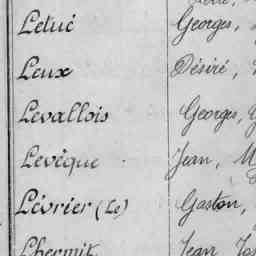 Letué Georges,
Leux Désiré,
Levallois Georges,
Levêque Jean, M
Lévrier (Le) Gaston,
Lhermit Jean